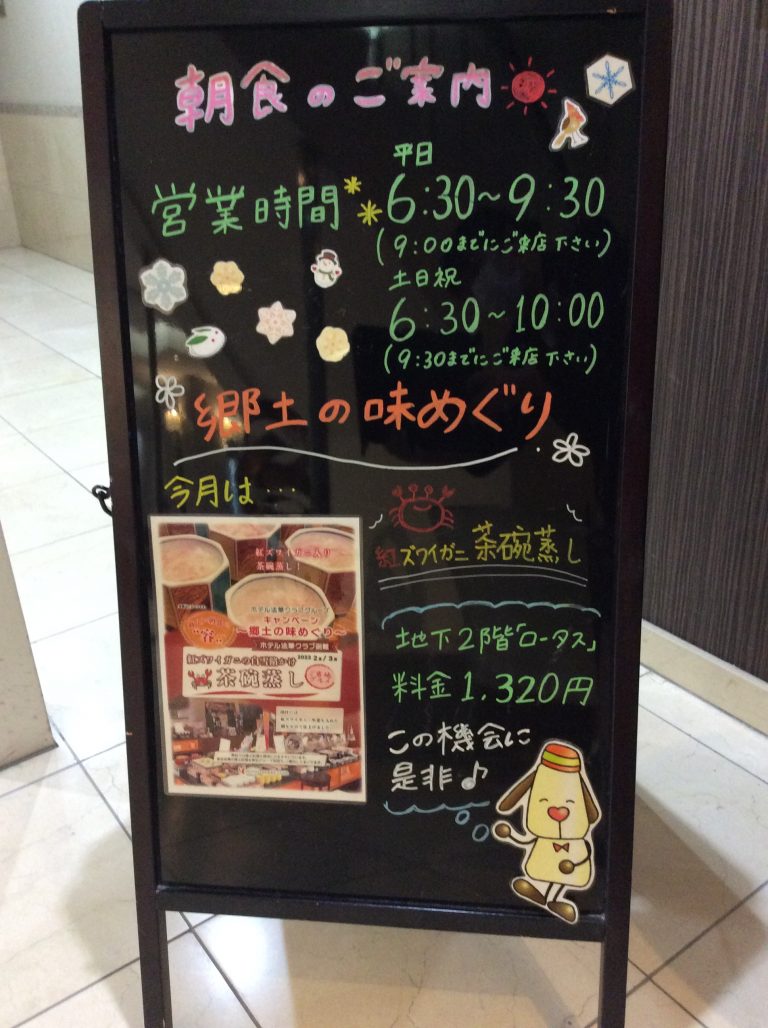 朝食のご案内
平日
営業時間 6:30～9:30
(9:00までにご来店下さい)
土日祝
6:30～10:00
(9:30までにご来店下さい)
郷土の味めぐり
今月は…
紅ズワイガニ 茶碗蒸し
紅ズワイガニ入り
茶碗蒸し!
ホテル法華クラブグループ
キャンペーン
～郷土の味めぐり～
ホテル法華クラブ函館
2022 2月/3月
茶碗蒸し
地下2階「ロータス」
料金1,320円
この機会に
是非♪